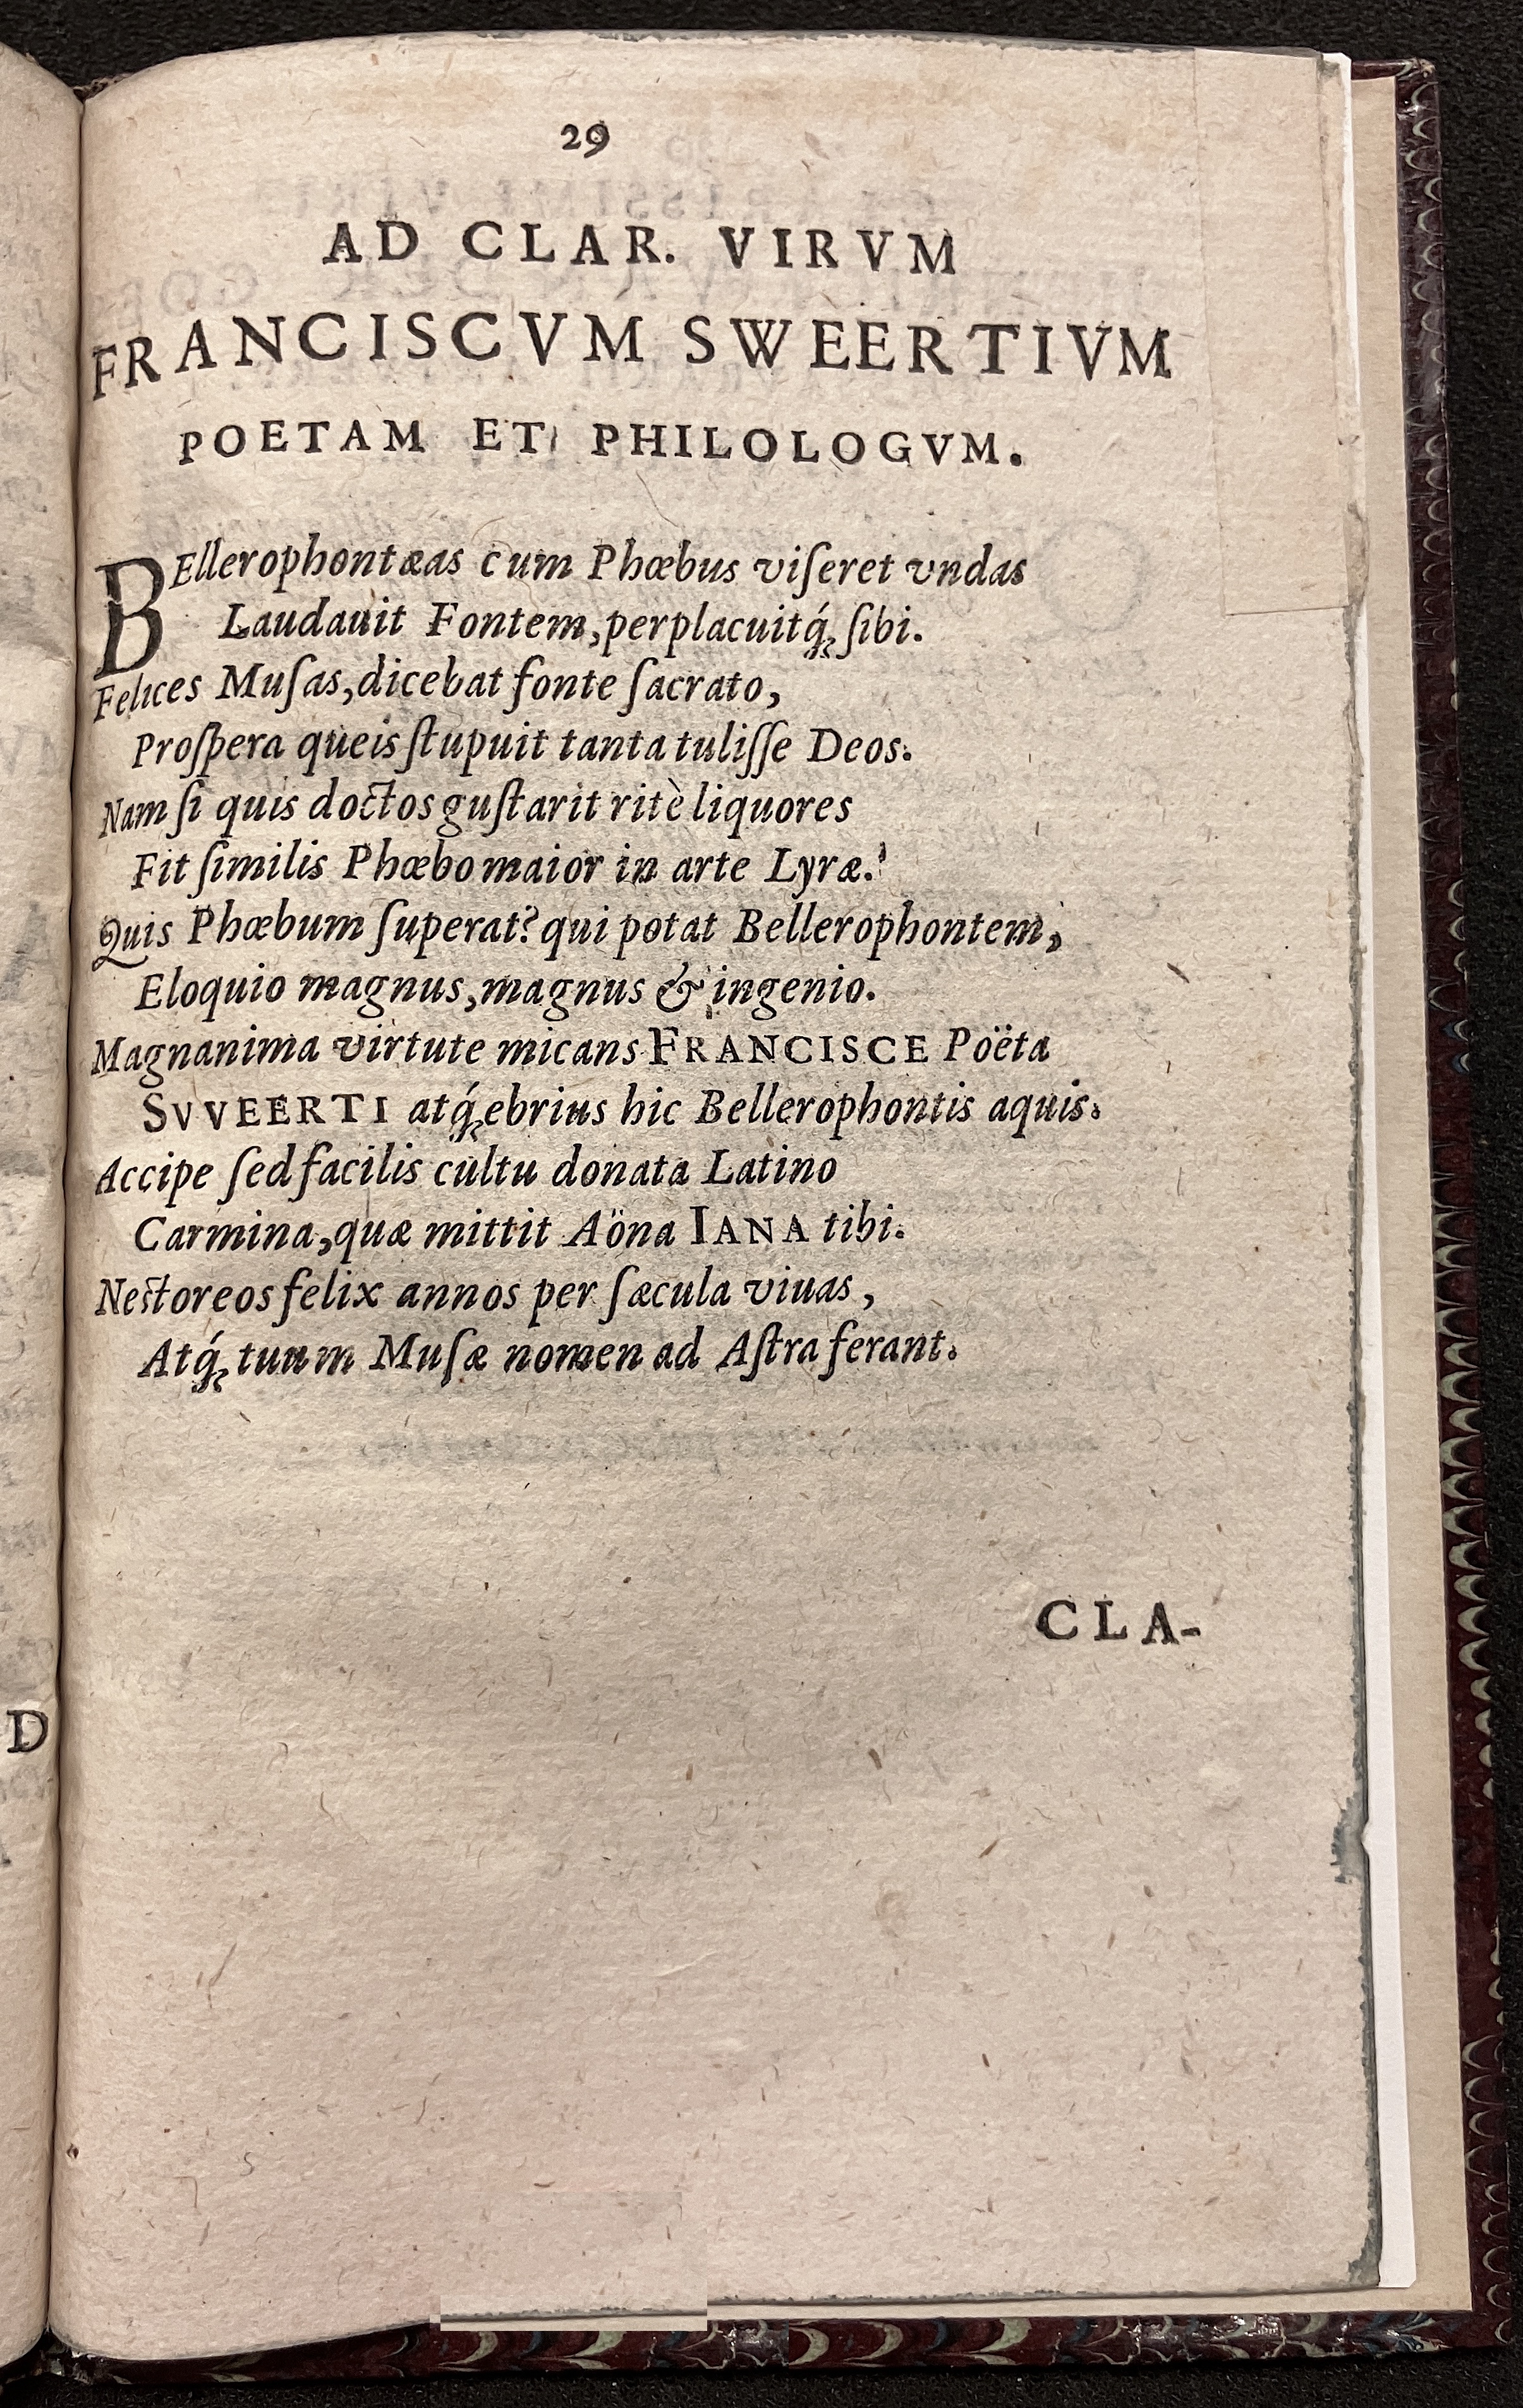 29
AD CLAR. VIRVM
FRANCISCVM SWEERTIVM
POETAM ET PHILOLOGVM.
BEllerophontæas cum Phœbus viſeret vndas
Laudauit Fontem, perplacuitq́ꝫ ſibi.
Felices Muſas, dicebat fonte ſacrato,
Proſpera queis ſtupuit tanta tuliſſe Deos.
Nam ſi quis doctos guſtarit ritè liquores
Fit ſimilis Phœbo maior in arte Lyræ.
Quis Phœbum ſuperat? qui potat Bellerophontem,
Eloquio magnus, magnus & ingenio.
Magnanima virtute micans FRANCISCE Poëta
SVVEERTI atq́ꝫ ebrius hic Bellerophontis aquis.
Accipe ſed facilis cultu donata Latino
Carmina, quæ mittit Aöna IANA tibi.
Neſtoreos felix annos per ſæcula viuas,
Atq́ꝫ tuum Muſæ nomen ad Aſtra ferant.
CLA-
D